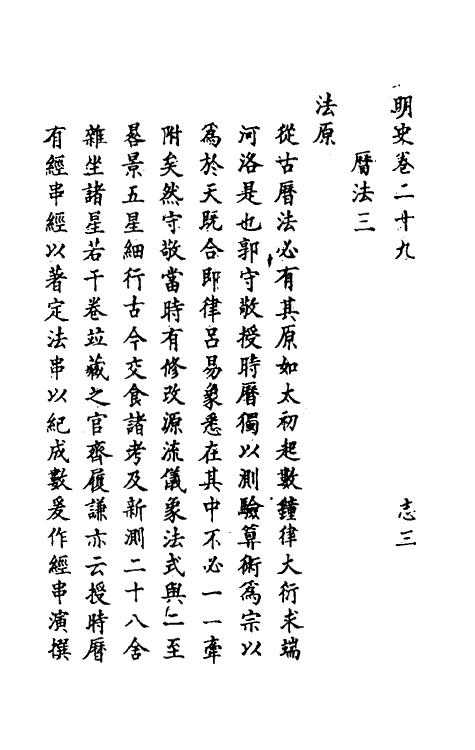 明史卷二十九　志三
曆法三
法原
從古曆法必有其原如太初起數鐘律大衍求端
河洛是也郭守敬授時曆獨以測驗算術爲宗以
爲於天既合即律呂易象悉在其中不必一一牽
附矣然守敬當時有修改源流儀象法式與二至
晷景五星細行古今交食諸考及新測二十八舍
雜坐諸星若干卷竝藏之官齊履謙亦云授時曆
有經串經以著定法串以紀成數爰作經串演撰